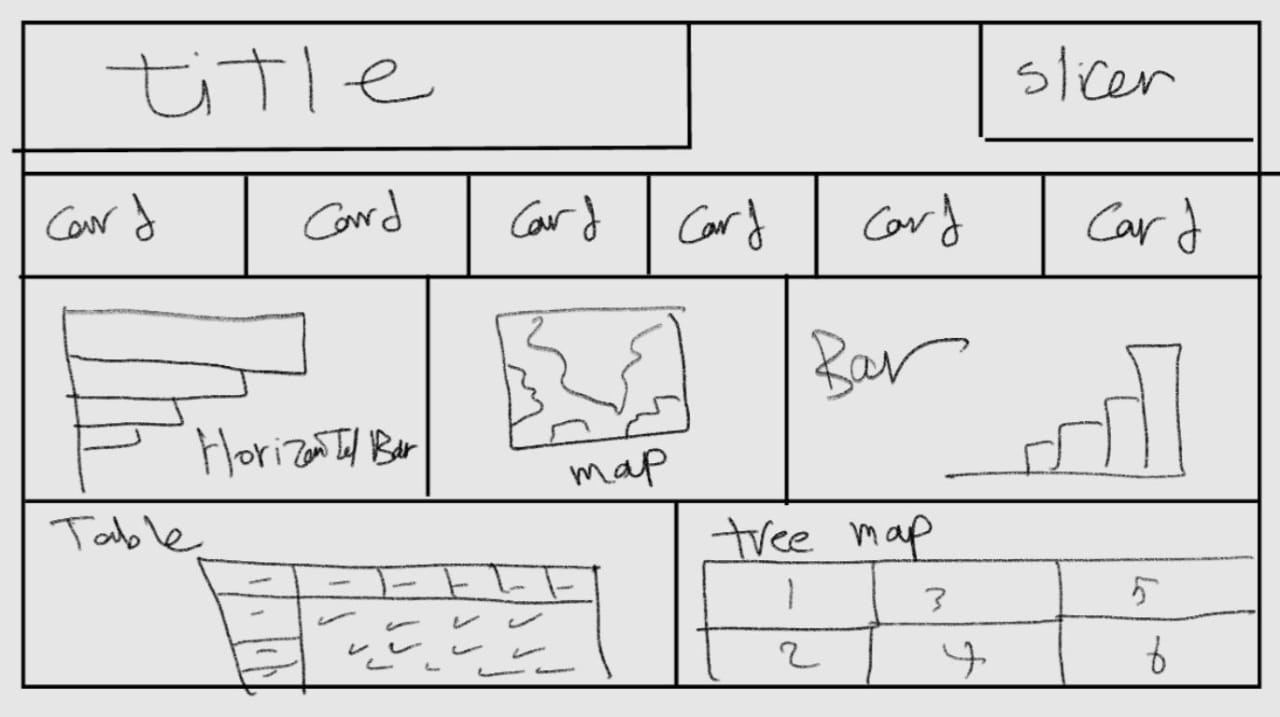 title
slicer
Card
Card
Card
Card
Card
Card
Horizontal Bar
map
Bar
Table
tree map
1 3 5
2 4 6